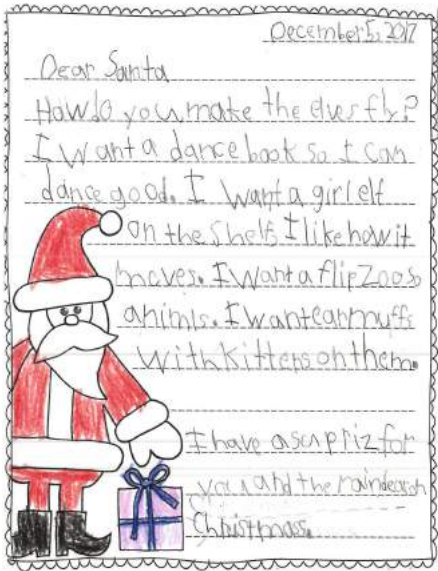 December 5, 2017
Dear Santa
How do you make the elves fly?
I want a dance book so I can
dance good. I want a girl elf
on the shelf, I like how it
moves. I want a flipZoos
animls. I want earmuffs
with kittens on them.
I have a supriz for
you and the raindear on
Christmas.